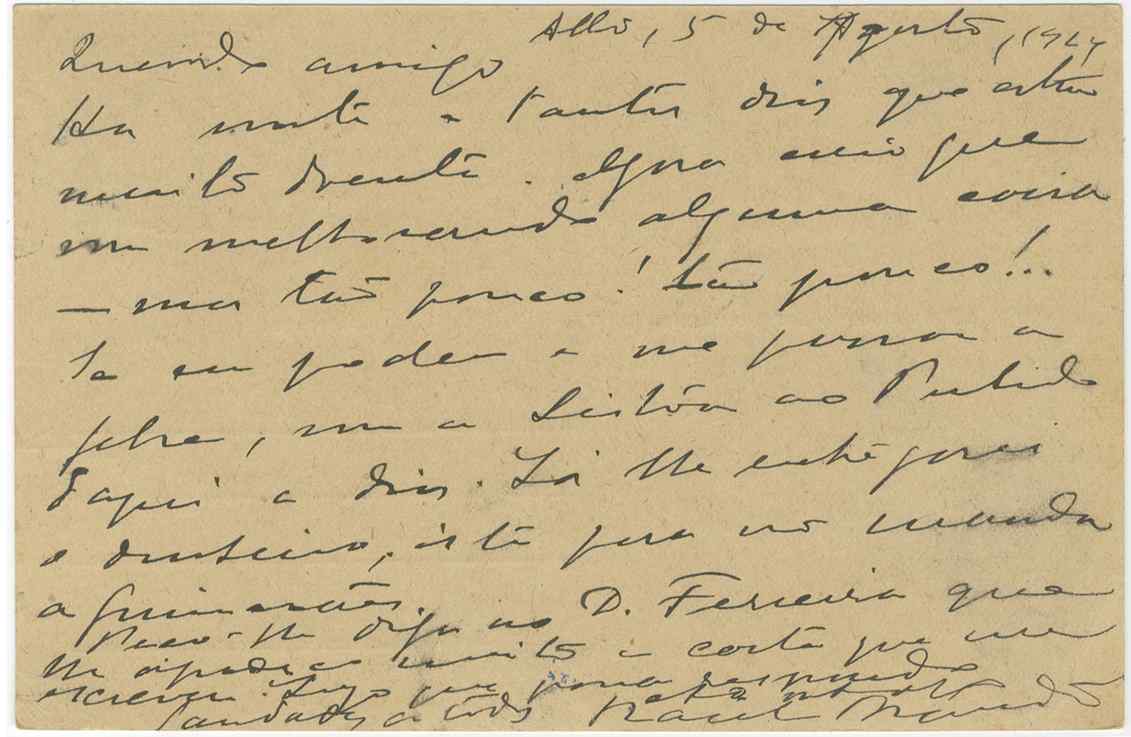 Alto, 5 de Agosto, 1924
Querido amigo
Ha vinte e tantos dias que estou
muito doente. Agora creio que
vou melhorando alguma coisa
— mas tão pouco! tão pouco!..
Se eu poder e me passar a
febre, vou a Lisbôa ao Partido
daqui a dias. Lá lhe entregarei
o dinheiro, isto para não mandar
a Guimarães.
Peço-lhe diga ao D. Ferreira que
lhe agradeço muito a carta que me
escreveu. Logo que possa respondo
Saudades a todos Raul Brandão